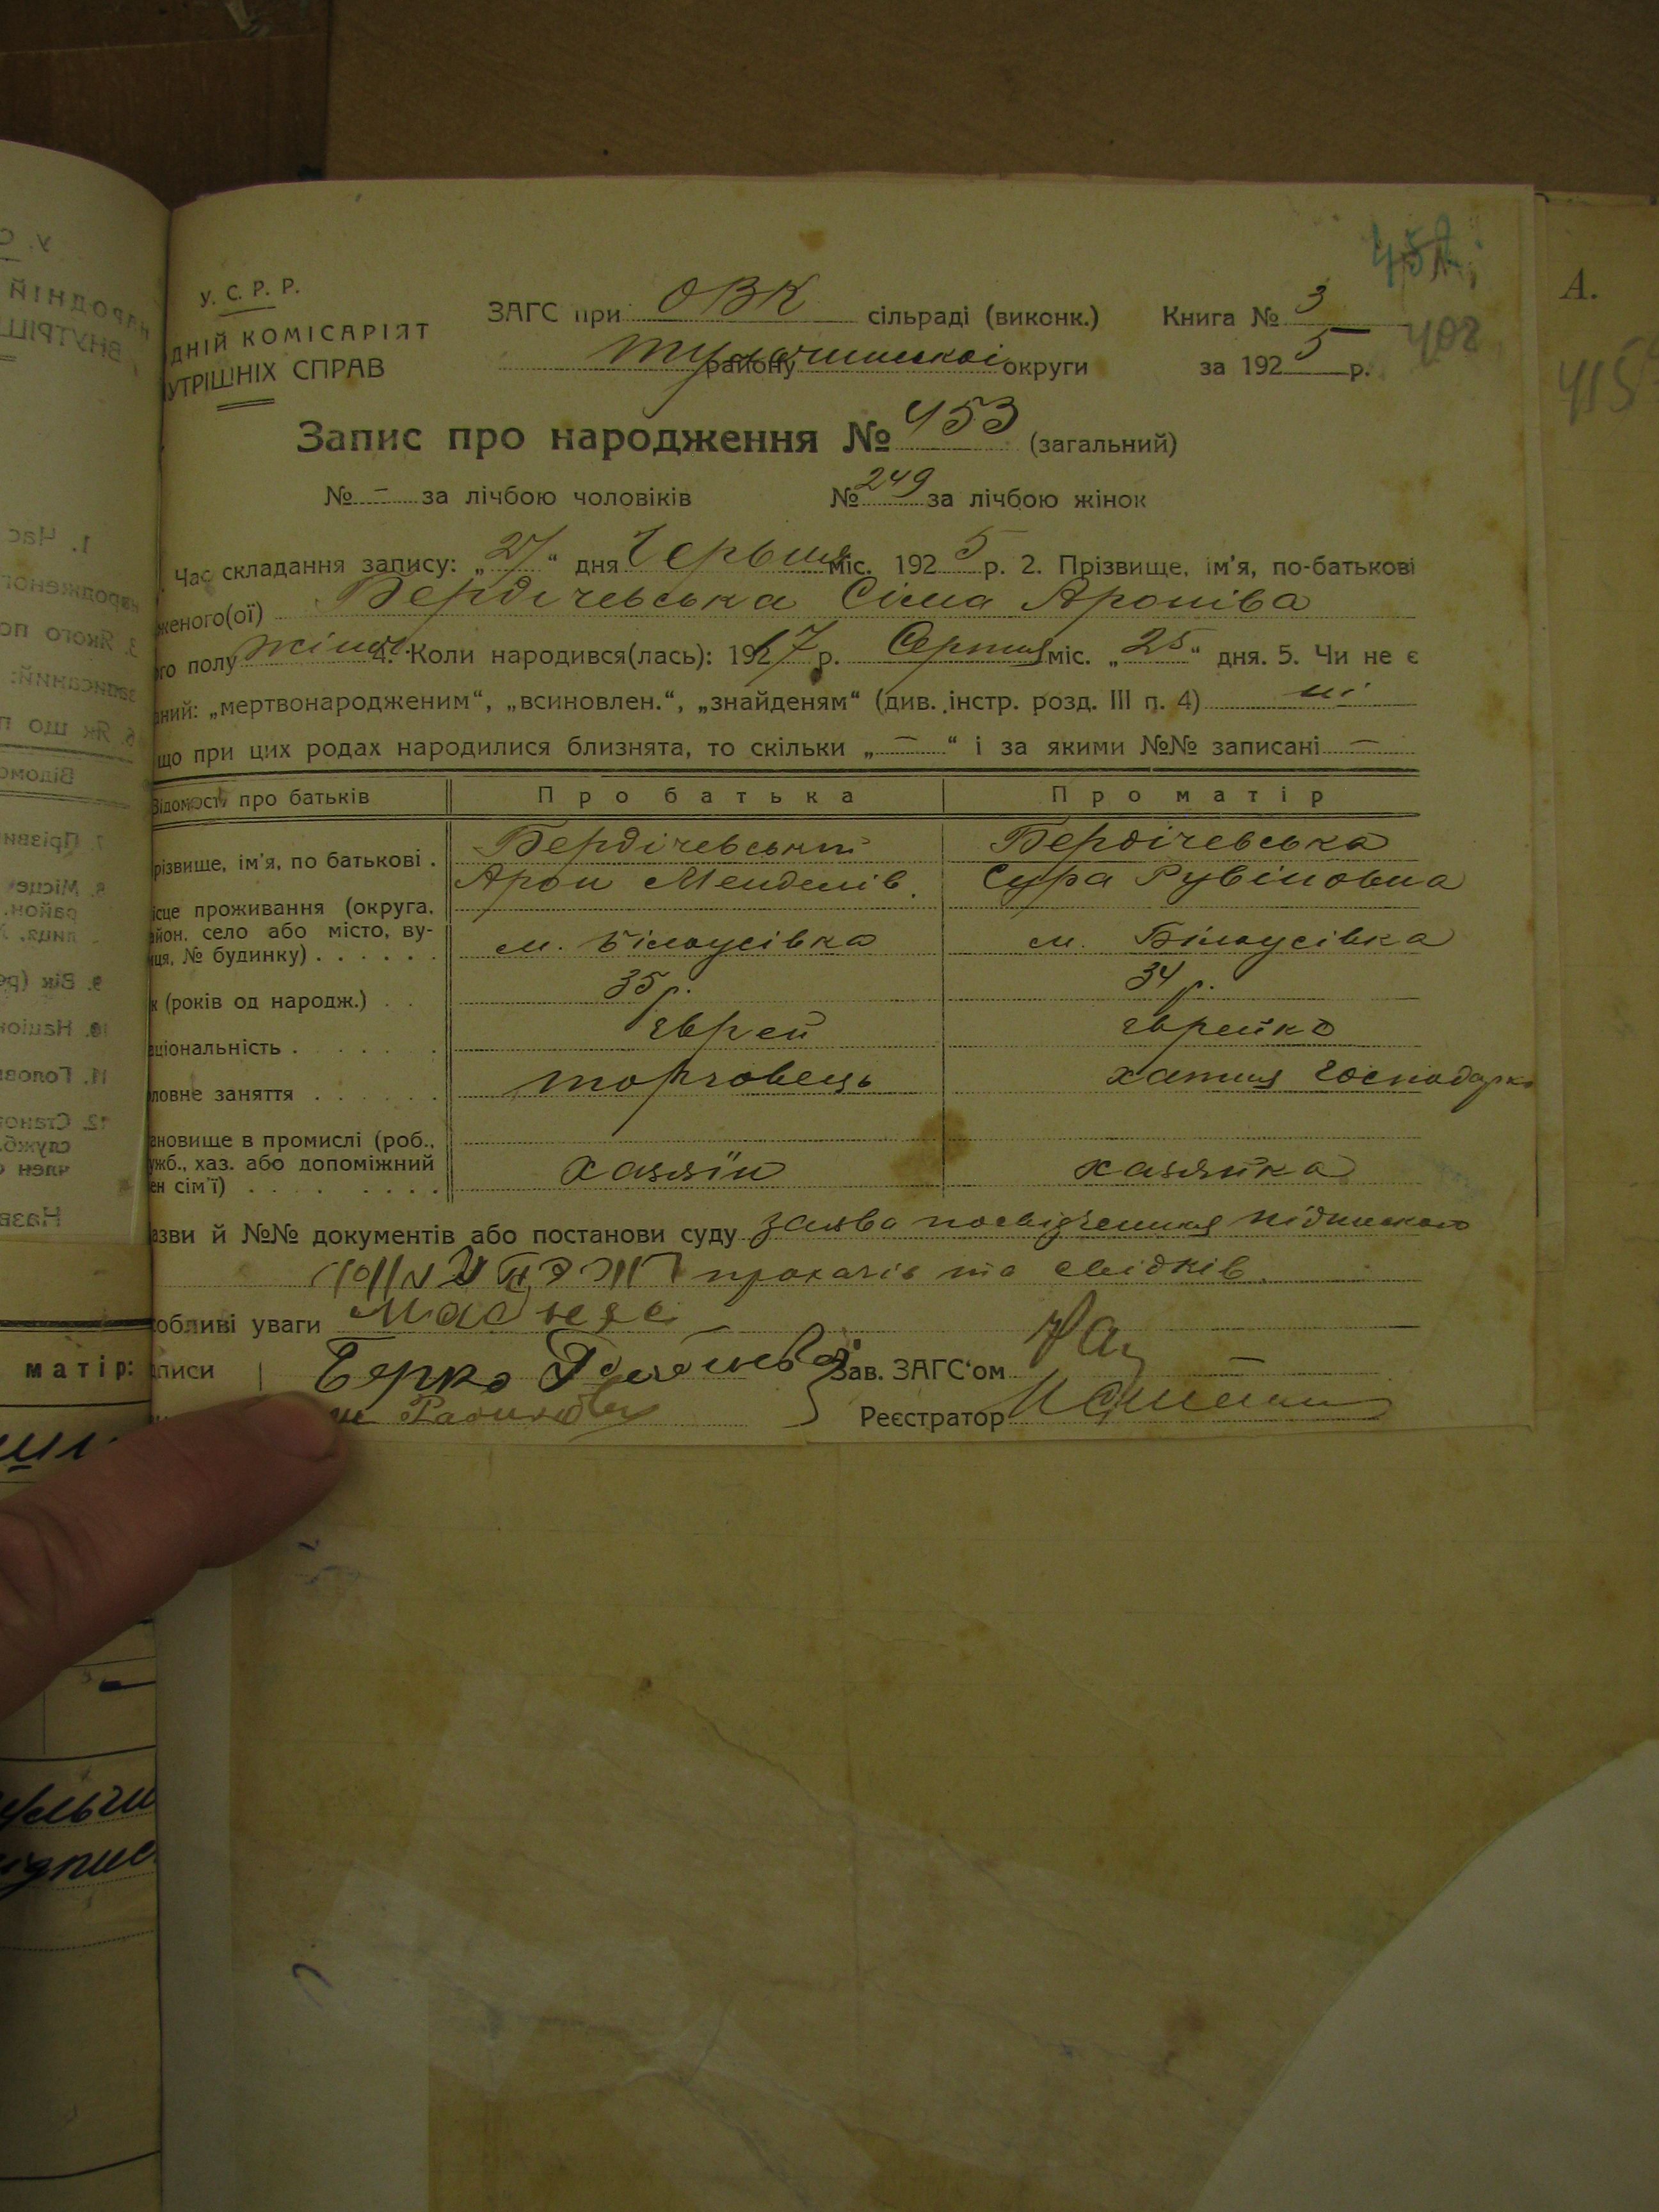 У. С. Р. Р.
ДНІЙ КОМІСАРІЯТ
УТРІШНІХ СПРАВ
ЗАГС при ОВК сільраді (виконк.)
району Тульчинської округи
Книга № 3
за 1925 р.
402
415
А.
Запис про народження № 453 (загальний)
№ – за лічбою чоловіків № 249 за лічбою жінок
Час складання запису: „27“ дня Червня міс. 1925 р. 2. Прізвище, ім'я, по-батькові
женого(ої) Бердічевська Сіма Аронівa
ого полу жіноч. 4. Коли народився(лась): 1917 р. Серпня міс. „25“ дня. 5. Чи не є
аний: „мертвонародженим“, „всиновлен.“, „знайденям“ (див. інстр. розд. III п. 4) ні
що при цих родах народилися близнята, то скільки „–“ і за якими №№ записані –
Відомости про батьків Про батька Про матір
різвище, ім'я, по батькові . Бердічевський Бердічевська
Арон Менделів. Сура Рувіновна
ісце проживання (округа,
айон, село або місто, ву-
иця, № будинку) . . . . . . м. Білоусівка м. Білоусівка
к (років од народж.) . . 35 р. 34 р.
аціональність . . . . . єврей єврейка
ловне заняття . . . . . . торговець хатня господарка
ановище в промислі (роб.,
ужб., хаз. або допоміжний
ен сім'ї) . . . . . . . хазяїн хазяйка
азви й №№ документів або постанови суду заява посвідчення підпискою
прохачів та свідків.
обливі уваги
дписи Берко
Зав. ЗАГС'ом
Реєстратор
матір: